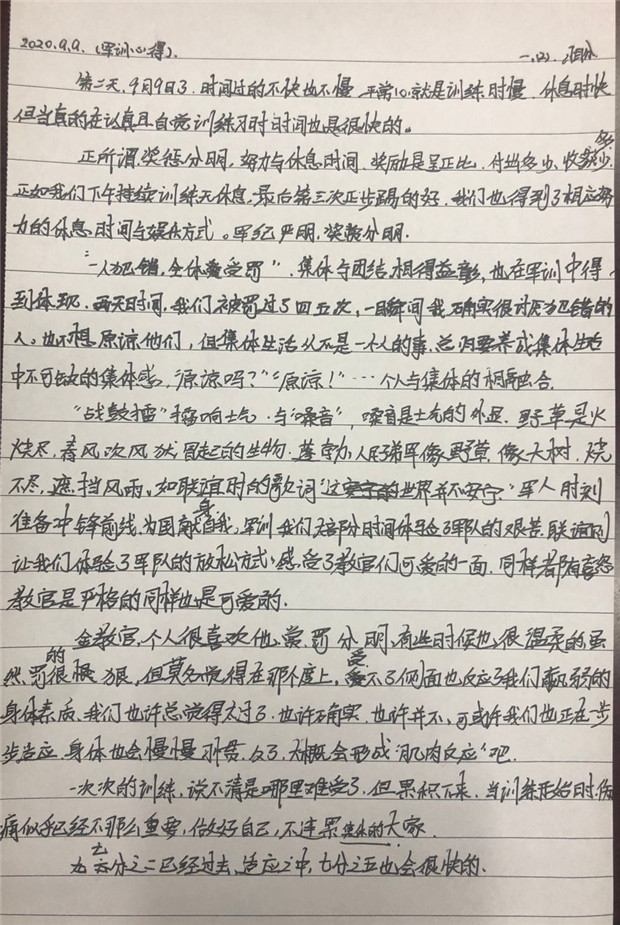 2020.9.9.(军训心得). 一.(2).
第二天,9月9日了.时间过的不快也不慢.平常心.就是训练时慢.休息时快
但当真的在认真且自觉训练习时时间也是很快的。
正所谓.奖惩分明,努力与休息时间.奖励是呈正比.付出多少.收多少.
正如我们下午持续训练无休息.最后第三次正步踢的好.我们也得到了相应努
力的休息时间与娱乐方式。军纪严明.奖惩分明.
"一人犯错,全体受罚".集体与团结.相得益彰,也在军训中得
到体现.两天时间.我们被罚过了四五次,一瞬间我确实很讨厌犯错的
人。也不想原谅他们,但集体生活从不是一个人的事.总归要养成集体生活
中不可缺的集体感."原谅吗?""原谅!"…个人与集体的相融合.
"战鼓擂"擂响士气.与"嗓音",嗓音是士气的外显.野草是火
烧尽,春风吹风状冒起的生物.蓬勃,人民子弟军像野草.像大树,烧
不尽,遮挡风雨。如联谊时的歌词"这世界并不安宁"军人时刻
准备冲锋前线.为国献身自我,军训我们大部分时间体验了军队的艰苦.联谊则
让我们体验了军队的放松方式、感受了教官们可爱的一面.同样都有喜怒
教官是严格的同样也是可爱的.
金教官,个人很喜欢他.赏.罚分明,有些时候也很温柔的虽
然.罚的很狠,但莫名觉得在那个度上,受不了侧面也反应了我们羸弱的
身体素质、我们也许总觉得太过了.也许确实.也许并不.可或许我们也正在一步
步适应.身体也会慢慢习惯.久了.大概会形成"肌肉反应"吧.
一次次的训练,说不清是哪里难受了.但累积下来.当训练开始时伤
痛似乎已经不那么重要,做好自己,不连累集体的大家.
七分之二已经过去、适应之中,七分之五也会很快的.